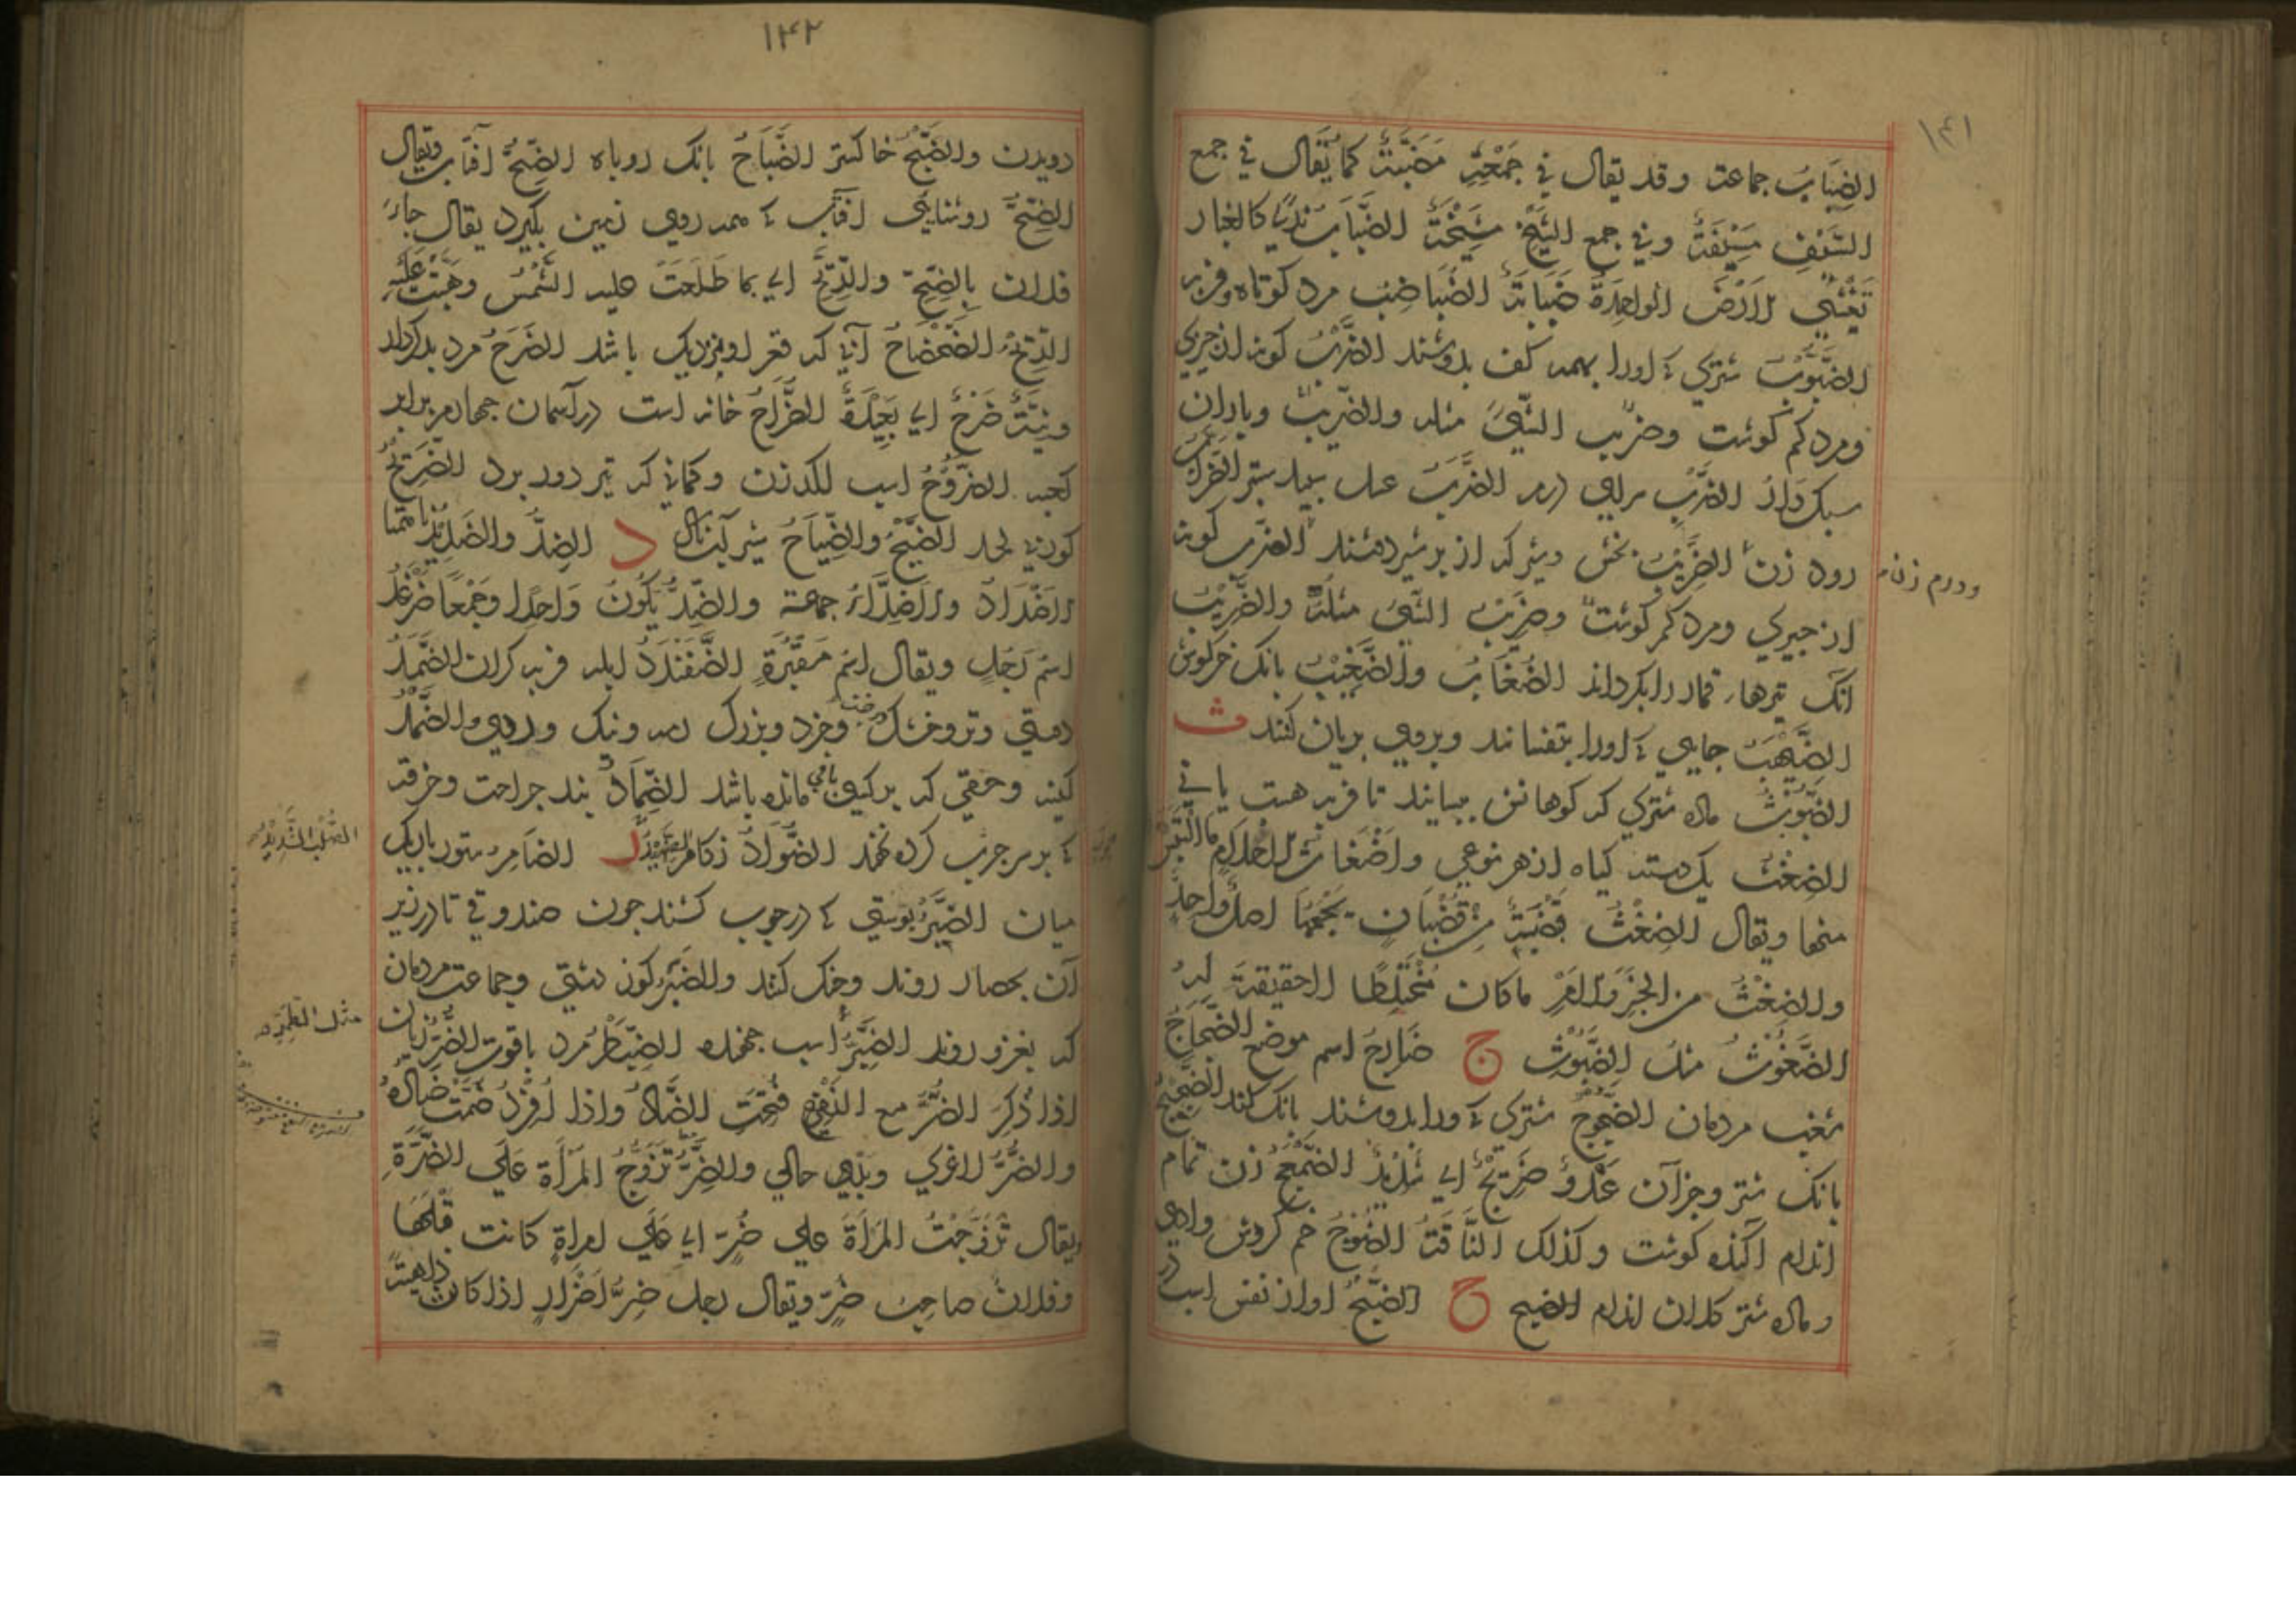 ۱۴۱
الضِبَابُ جماعت وقد يقال في جَمْعِهِ مَضَبَّةٌ كما يُقال في جمع
السَّيْفِ مَسْيَفَةٌ وفي جمع الشَيْخ مَشْيَخَةٌ الضَّبَابُ كالغبار
تَغْشَي الأرْضَ الواحِدَةُ ضَبَابَةٌ الضُبَاضِبُ مرد كوتاه وفربه
الضَّبُوْبُ شتري كه اورا بهمه كف بدوشند الضَّرْبُ كونه از چيزي
ومرد كم كوشت وضَرْب الشَّيْ مثله والضَّرِيْبُ وباران
سبك واز الضَّرْبِ سراي درم الضَّرَبُ عسل سپيد ستبر
رود زن الضَّرِيْبُ بخش وشير كه از بر شير دهند الضرب كونه
ودرم زن
از چيزي ومرد كم كوشت وضَرِيْبُ الشَّيْ مثلُهُ والضَّرِيْبُ
انك تيرهاء قمار را بكرداند الضُغَابُ والضَّغِيْبُ بانك خركوش
الضَيْهَبُ جايي كه اورا بتفسانند وبروي بريان كنند ث
الضَّبُوْثُ ماده شتري كه كوهانش ببسايند تا فربه هست يا ني
الضِغْثُ يك دسته كياه از هر نوعي واَضْغَاثُ الاحْلَامِ مَا الْتَبَسَ
منها ويقال الضِغْثُ قَبْضَةٌ مِنْ قُضْبَانٍ يَجْمَعُهَا اصلٌ واحِدٌ
والضِغْثُ من الخبَرِ والاَمْرِ ماكان مُخْتَلِطًا لاحقيقة لَهُ
الضَّغُوْثُ مثلُ الضَّبُوْثِ ج ضَارِجُ اسم موضع الضَّجَاجُ
شغب مردمان الضَّجُوْجُ شتري كه اورا بدوشند بانك كند الضَّجِيْجُ
بانك شتر وجزآن عَدْوٌ ضَرِيْجٌ اي شَدِيْدٌ الضَّمْعَجُ زن تمام
اندام اكنده كوشت وكذلك النَّاقَةُ الضَّوْجُ خم كروش وادي
وماده شتر كلان اندام الضبح ح الضَّبْحُ اواز نفس اسب در
۱۴۲
دويدن والضَّبْحُ خاكستر الضُّبَاحُ بانك روباه الضِّحُّ افتاب ويقال
الضِّحُّ روشنايي افتاب كه همه روي زمين بكيرد يقال جاءَ
فلان بِالضِّحِّ والرِّيْحِ اي بما طَلَعَتْ عليه الشَّمْسُ وهَبَّتْ عَلَيْهِ
الرِّيْحُ الضَّحْضَاحُ آبي كه قعر او نزديك باشد الضَّرَحُ مرد بدكردار
ونِيَّةٌ ضَرَحٌ اي بَعِيْدَةٌ الضُّرَاحُ خانه است درآسمان چهارم برابر
كعبه الضَّرُوْحُ اسب لكدزن وكماني كه تير دور برد الضَرِيْحُ
كوربي لحد الضَّيْحُ والضَّيَاحُ شير آبناك د الضِدُّ والضَدِيْدُ ناهمتا
الاَضْدَادُ والاَضِدَّاءُ جماعت والضِدُّ يَكُوْنُ وَاحِدًا وجَمْعًا ضَرْغَدُ
اسْمُ رَجُلٍ ويقال اسْمُ مَقْبُرَةٍ الضَّفَنْدَدُ ابله فربه كران الضَّمْدُ
دوستي وتر وخشك وخرد وبزرك رمه ونيك وردي والضَّمَدُ
كينه وحقي كه بر كسي باقي مانده باشد الضِّمَادُ بند جراحت وخرقه
كه بر سر چرب كرده نهند الضُّوَادُ زكام ر الضَامِر ستور باريك
الصُّلْبُ الشَّدِيْدُ
ميان الضَّبْرُ پوستي كه درچوب كشند چون صندوقي تا درزير
آن بحصار روند وجنك كنند والضَبْر كون دشتي وجماعت مردمان
كه بغزو روند الضِبِرُّ اسب جهنده الضِبَطْر مرد باقوت الضَّرُّ زيان
مثل القِمَطْرِ
اذا ذُكِرَ الضَّرُّ مع النَّفْعِ فُتِحَتِ الضَّادُ واذا اُفْرِدَ ضُمَّتْ ضَادُهُ
والضُّرُّ لاغري وبدي حالي والضِرُّ تَزَوُّجُ المَرْأَةِ عَلَي الضَّرَّةِ
يقال تَزَوَّجْتُ المَرْأَةَ علي ضِرٍّ اي عَلَي امراةٍ كانت قَبْلَهَا
وفلانٌ صاحِبُ ضِرٍّ ويقال رجل ضِرُّ اَضْرَارٍ اذا كان دَاهِيَةً